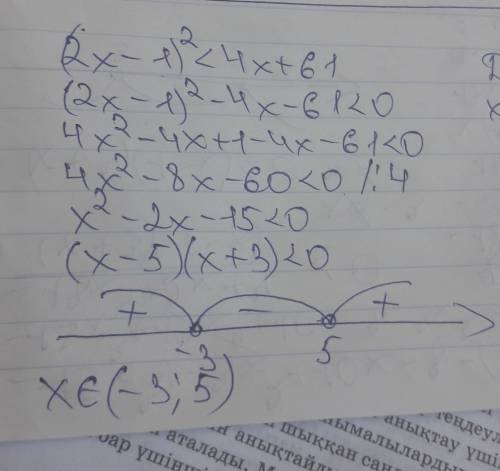 (2x-1)²<4x+61
(2x-1)²-4x-61<0
4x²-4x+1-4x-61<0
4x²-8x-60<0 /:4
x²-2x-15<0
(x-5)(x+3)<0
+ - +
-3 5
x∈(-3;5)
анықтау үші
шыққан сан
аталады.
бар үшінші